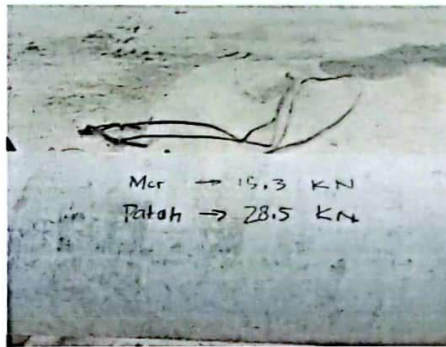 Mcr → 15.3 KN
Patah → 28.5 KN